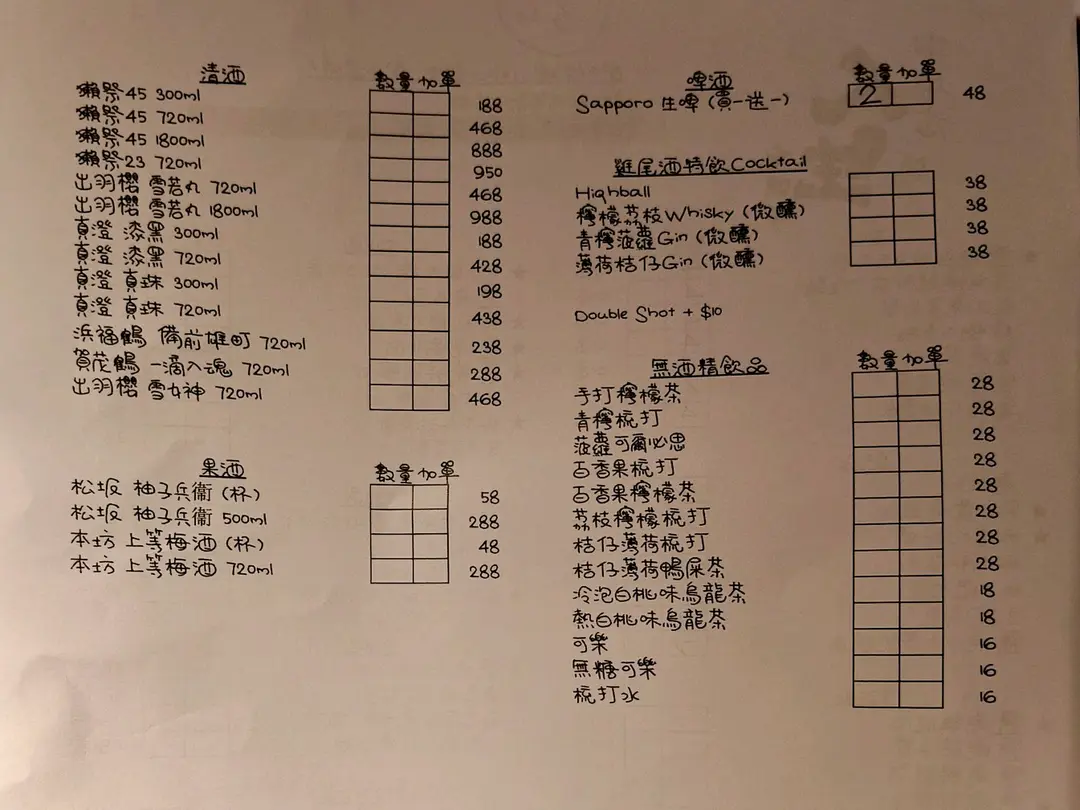 清酒 數量 加單
獺祭45 300ml 188
獺祭45 720ml 468
獺祭45 1800ml 888
獺祭23 720ml 950
出羽櫻 雪若丸 720ml 468
出羽櫻 雪若丸 1800ml 988
真澄 漆黑 300ml 188
真澄 漆黑 720ml 428
真澄 真珠 300ml 198
真澄 真珠 720ml 438
浜福鶴 備前雄町 720ml 238
賀茂鶴 一滴入魂 720ml 288
出羽櫻 雪女神 720ml 468
果酒 數量 加單
松坂 柚子兵衞 (杯) 58
松坂 柚子兵衞 500ml 288
本坊 上等梅酒 (杯) 48
本坊 上等梅酒 720ml 288
啤酒 數量 加單
Sapporo 生啤 (買一送一) 2 48
雞尾酒特飲Cocktail
Highball 38
檸檬荔枝Whisky (微醺) 38
青檸菠蘿Gin (微醺) 38
薄荷桔仔Gin (微醺) 38
Double Shot + $10
無酒精飲品 數量 加單
手打檸檬茶 28
青檸梳打 28
菠蘿可爾必思 28
百香果梳打 28
百香果檸檬茶 28
荔枝檸檬梳打 28
桔仔薄荷梳打 28
桔仔薄荷鴨屎茶 28
冷泡白桃味烏龍茶 18
熱白桃味烏龍茶 18
可樂 16
無糖可樂 16
梳打水 16